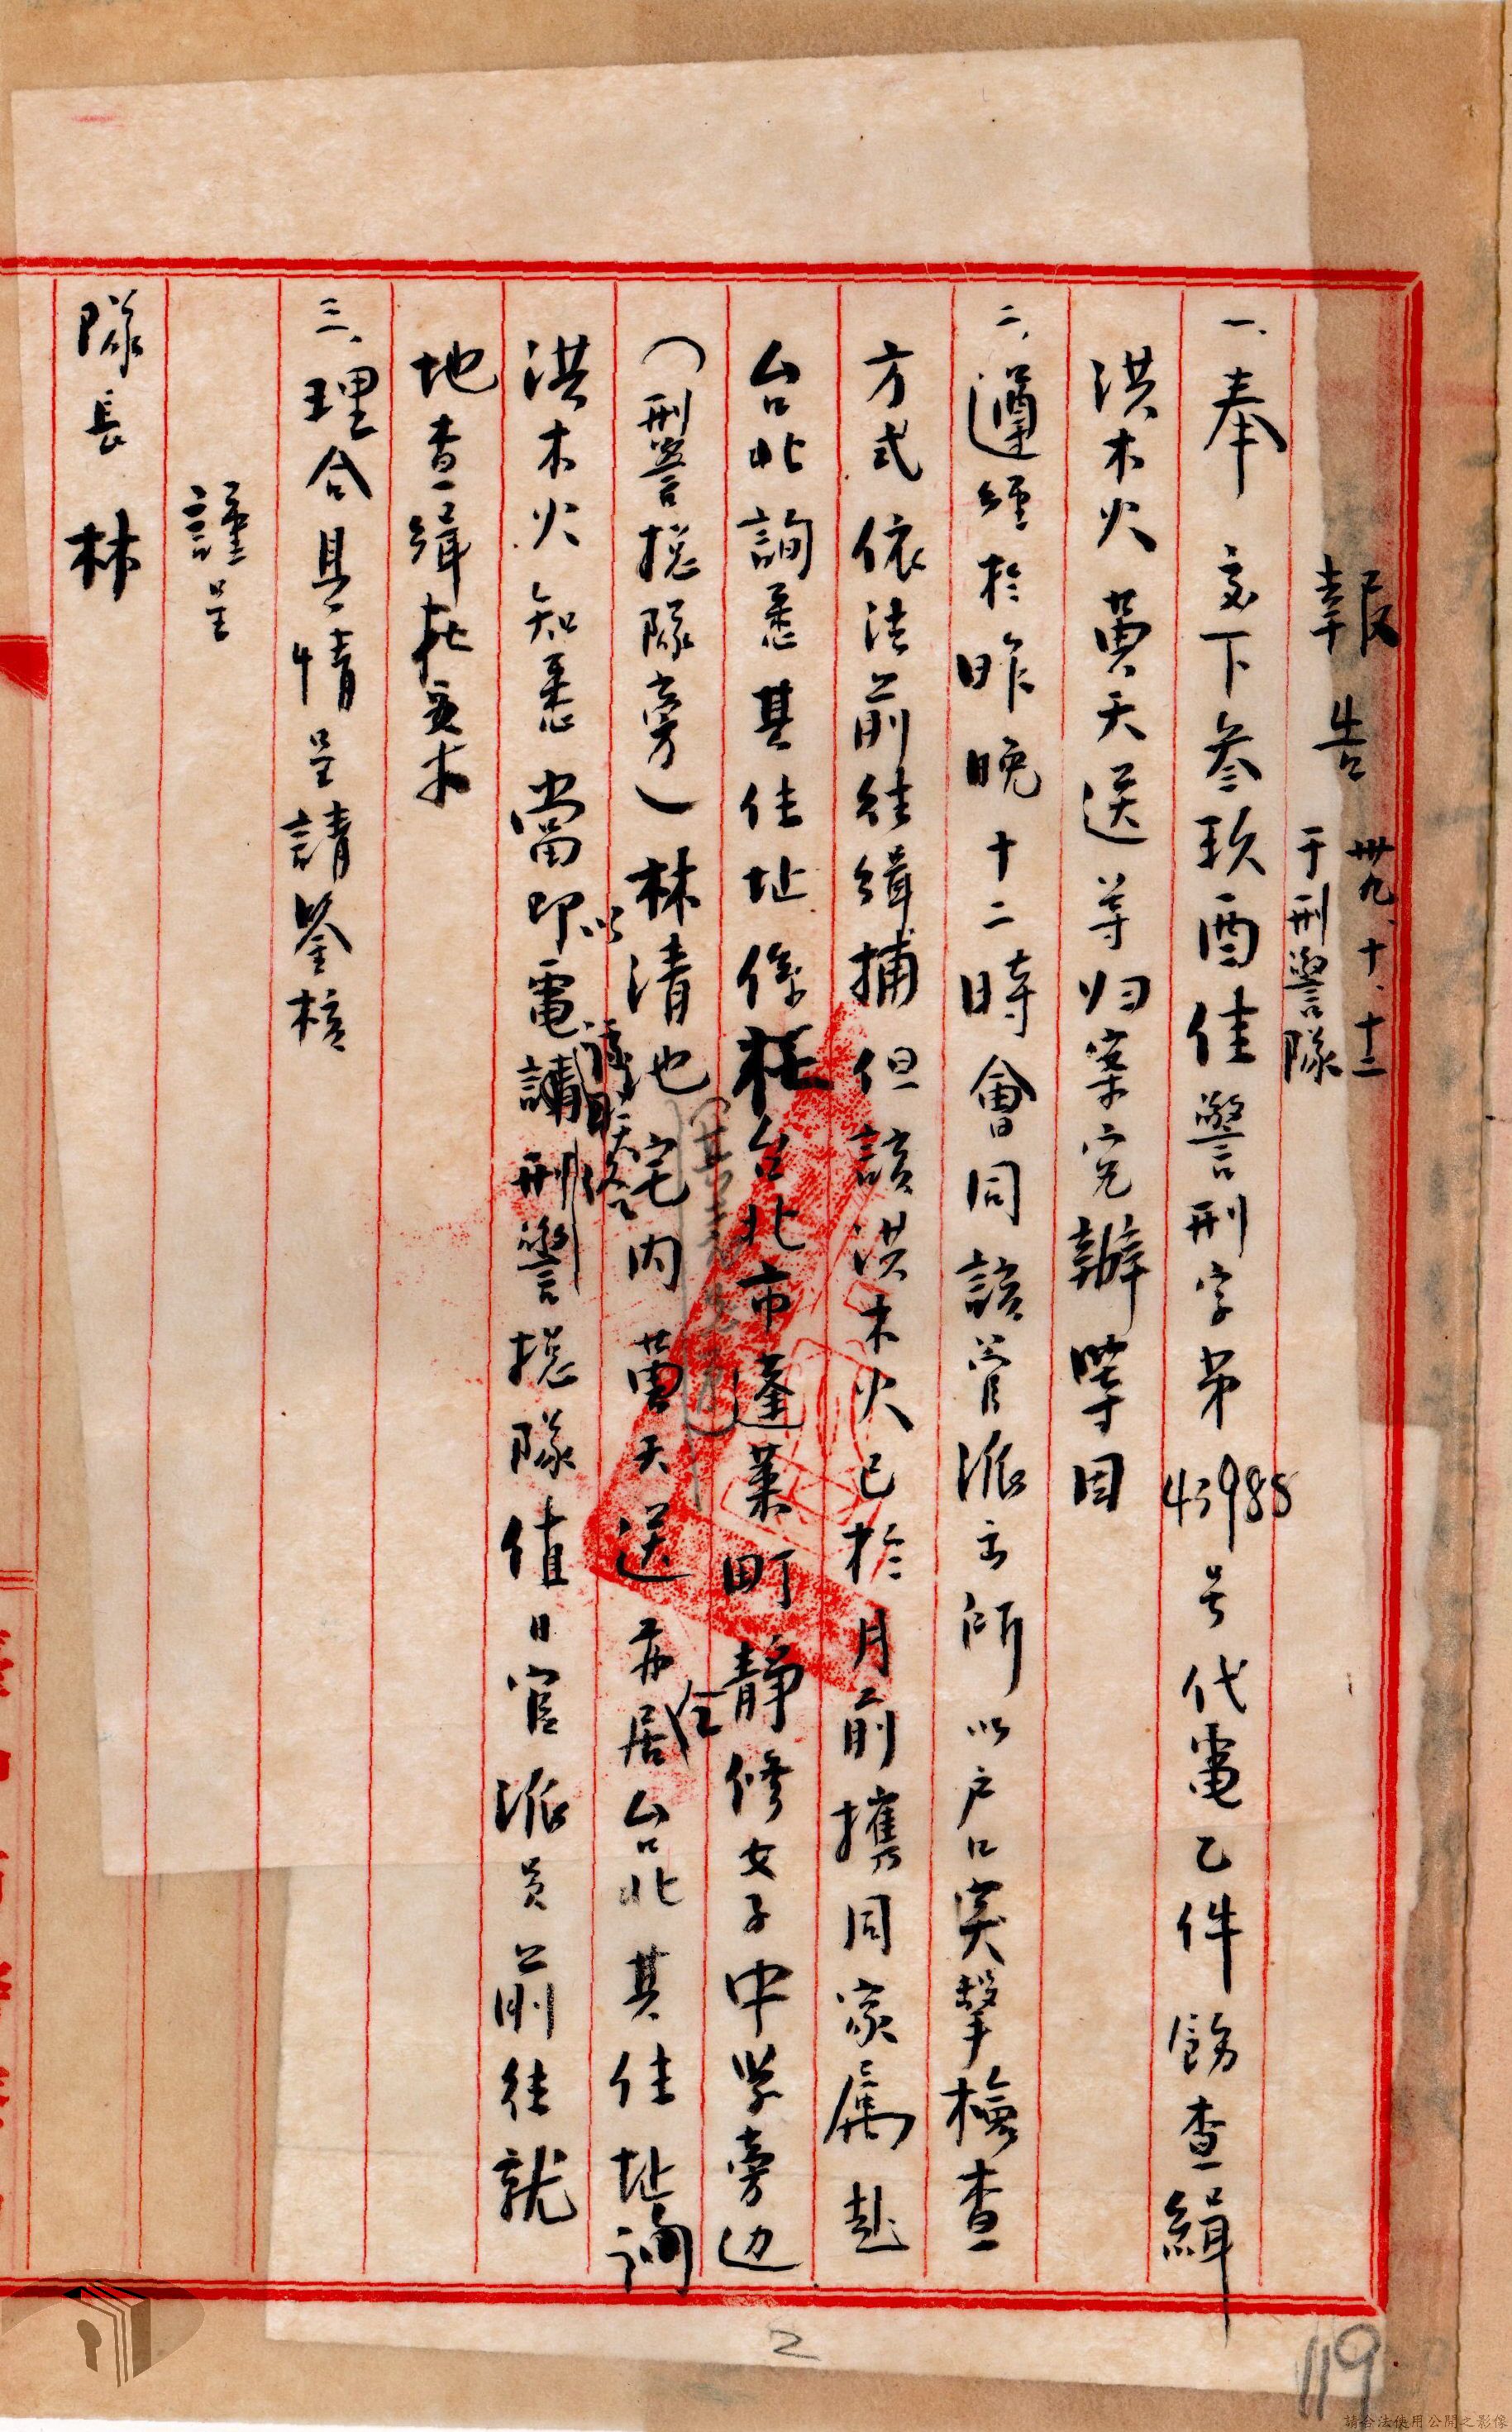 報告
卅九、十、十二
于刑警隊
一、奉 交下參玖酉佳警刑字第43988号代電乙件飭查緝
洪木火 黄天送等归案究辦等因
二、遵經於昨晚十二時會同該管派出所以户口突擊檢查
方式依法前往緝捕但該洪木火已於月前攜同家属赴
台北詢悉其住址係在台北市蓬萊町靜修女子中学旁边
(刑警總隊旁)林清池宅内 黄天送亦居住台北其住址詢
洪木火知悉當即以電請刑警總隊值日官派員前往就
地查緝
三、理合具情呈請鑒核
謹呈
隊長 林
2
119
請合法使用公開之影像